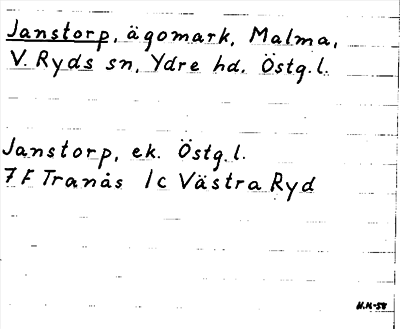 Janstorp, ägomark, Malma,
V. Ryds sn, Ydre hd, Östg.l.
Janstorp, ek. Östg.l.
7 F Tranås 1c Västra Ryd